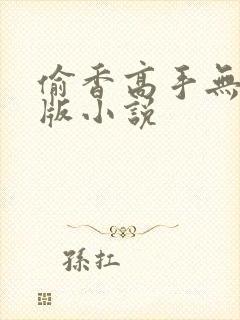 偷香高手無
版小說
孫扛